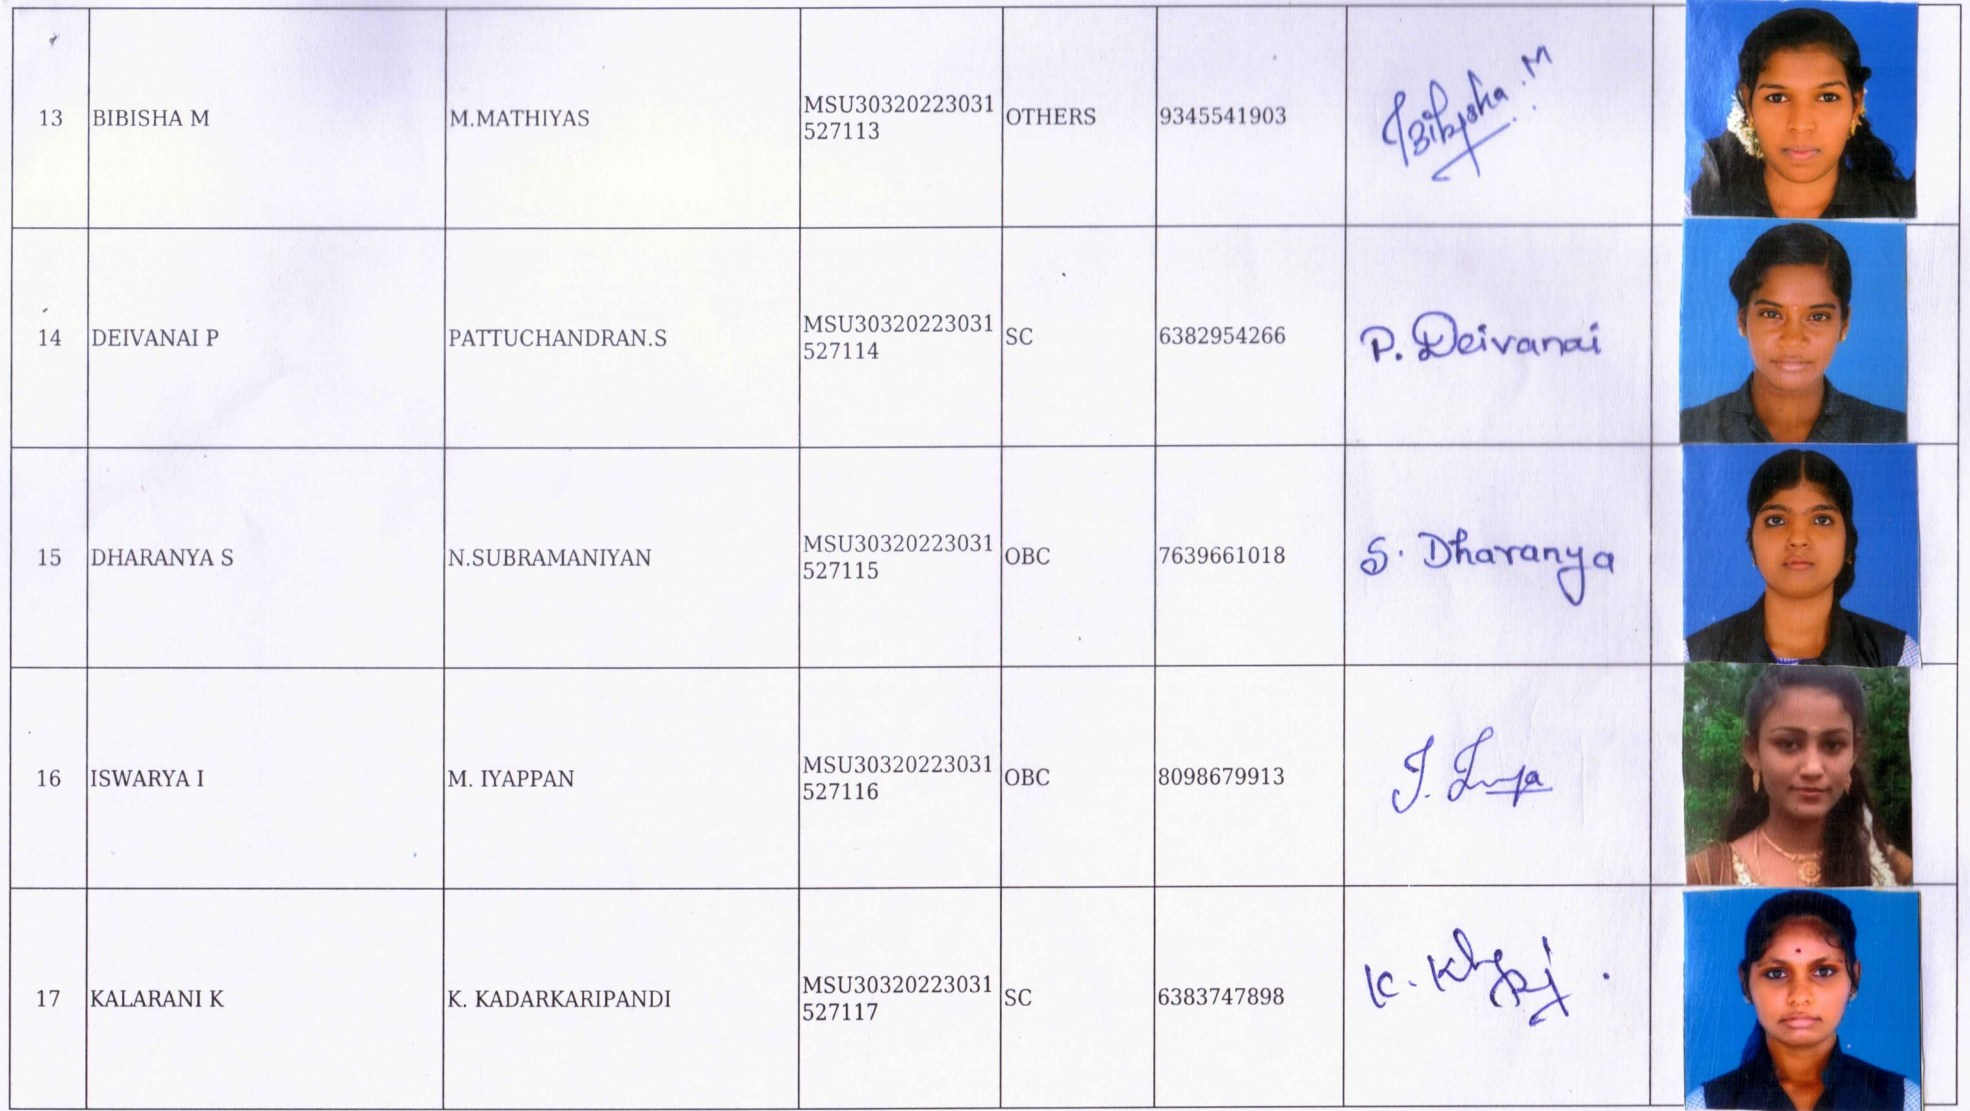 13 BIBISHA M M.MATHIYAS MSU30320223031 OTHERS 9345541903 Bibisha.M
527113
14 DEIVANAI P PATTUCHANDRAN.S MSU30320223031 SC 6382954266 P. Deivanai
527114
15 DHARANYA S N.SUBRAMANIYAN MSU30320223031 OBC 7639661018 S. Dharanya
527115
16 ISWARYA I M. IYAPPAN MSU30320223031 OBC 8098679913
527116
17 KALARANI K K. KADARKARIPANDI MSU30320223031 SC 6383747898
527117